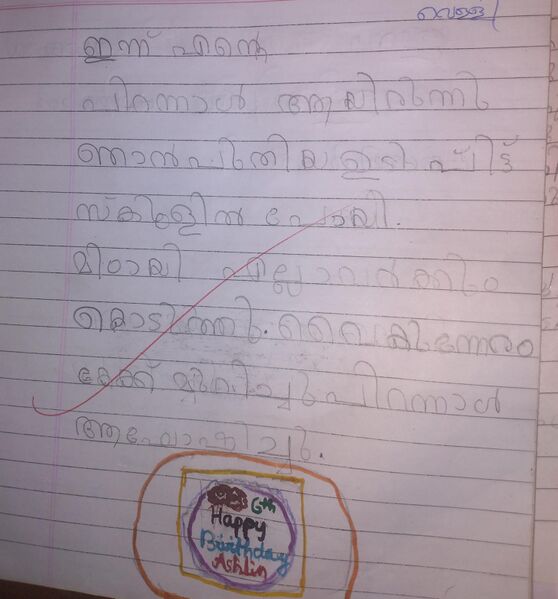 വെള്ളി
ഇന്ന് എന്റെ
പിറന്നാൾ ആയിരുന്നു
ഞാൻ പുതിയ ഉടുപ്പിട്ട്
സ്കൂളിൽ പോയി.
മിഠായി എല്ലാവർക്കും
കൊടുത്തു. വൈകുന്നേരം
കേക്ക് മുറിച്ചു പിറന്നാൾ
ആഘോഷിച്ചു.
6th
Happy
Birthday
Ashlin